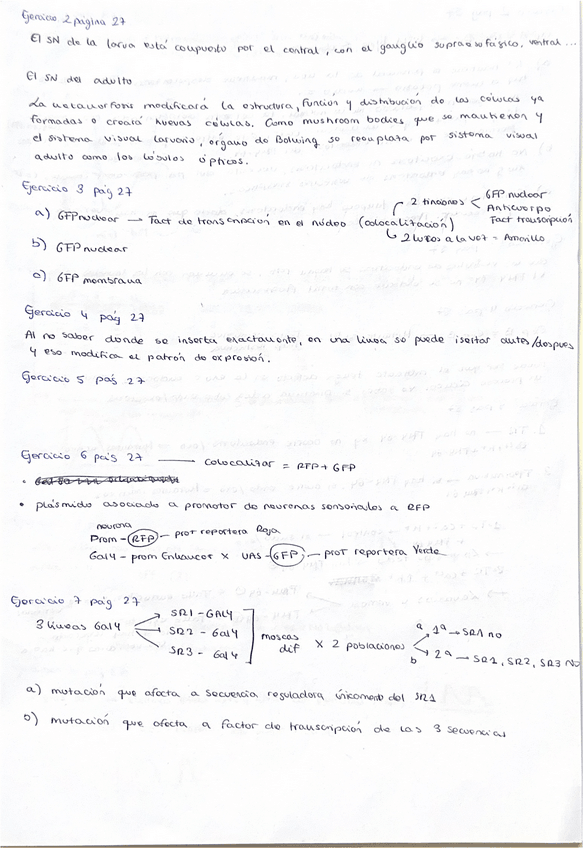 Ejercicio 2 página 27
El SN de la larva está compuesto por el central, con el ganglio supraesofágico, ventral...
El SN del adulto
La metamorfosis modificará la estructura, función y distribución de las células ya
formadas o creará nuevas células. Como mushroom bodies que se mantienen y
el sistema visual larvario, órgano de Bolwing se reemplaza por sistema visual
adulto como los lóbulos ópticos.
Ejercicio 3 pág 27
a) GFP nuclear → Fact de transcripción en el núcleo (colocalización)
2 tinciones < GFP nuclear
Anticuerpo
Fact transcripción
2 luces a la vez = Amarillo
b) GFP nuclear
c) GFP membrana
Ejercicio 4 pág 27
Al no saber donde se inserta exactamente, en una línea se puede insertar antes/despues
y eso modifica el patrón de expresión.
Ejercicio 5 pág 27
Ejercicio 6 pág 27 → colocalizar = RFP + GFP
• plásmido asociado a promotor de neuronas sensoriales a RFP
neurona
Prom - RFP - prot reportera Roja
Gal4 - prom Enhancer x UAS - GFP - prot reportera Verde
Ejercicio 7 pág 27
3 líneas Gal4
SR1 - GAL4
SR2 - Gal4
SR3 - Gal4
moscas dif x 2 poblaciones
a 1ª → SR1 no
b 2ª → SR1, SR2, SR3 NO
a) mutación que afecta a secuencia reguladora únicamente del SR1
b) mutación que afecta a factor de transcripción de las 3 secuencias